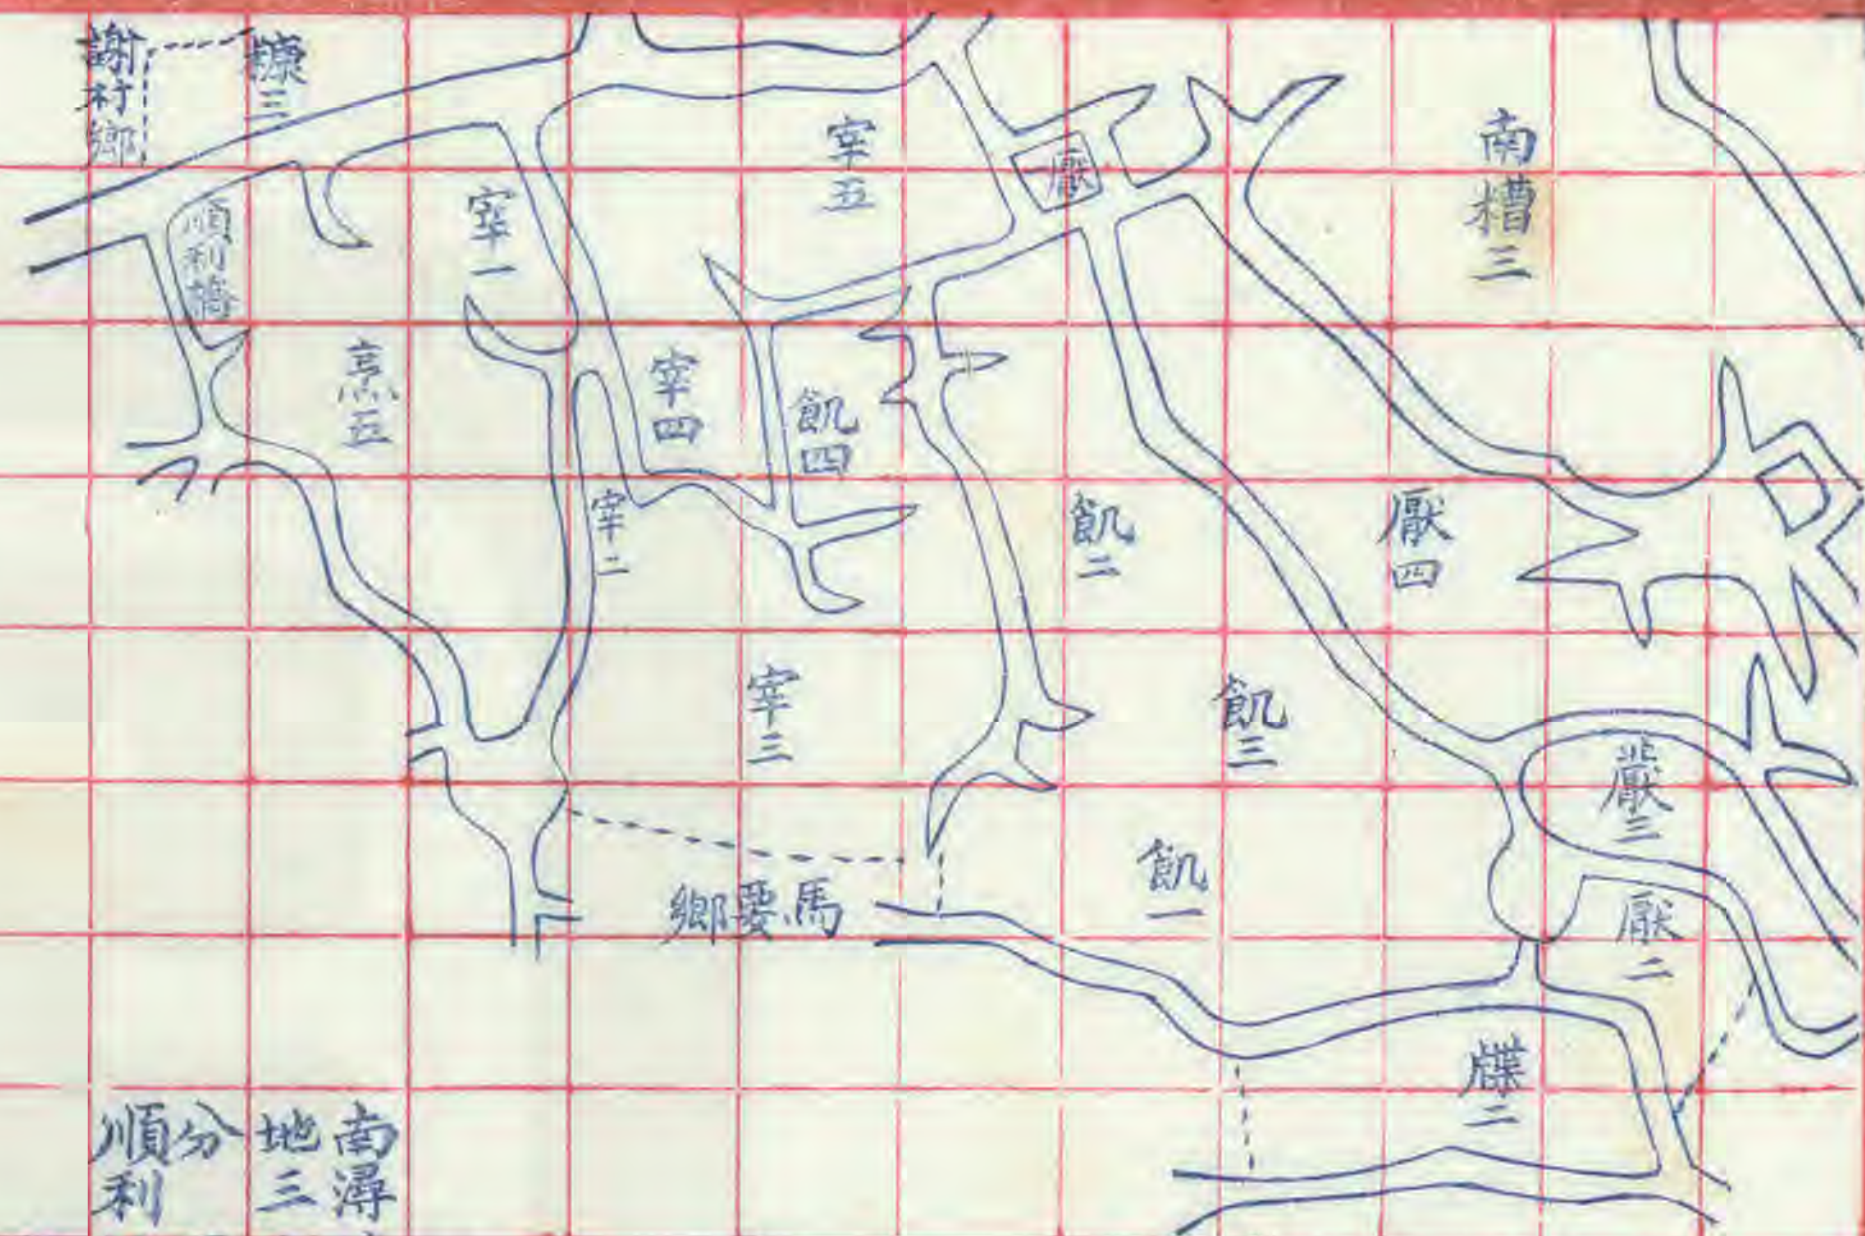 謝村鄉
糠三
順利橋
宰一
宰五
厭
南糟三
烹五
宰四
飢四
宰二
飢二
厭四
宰三
飢三
厭三
飢一
厭二
馬要鄉
二
南潯
地三
分
順利